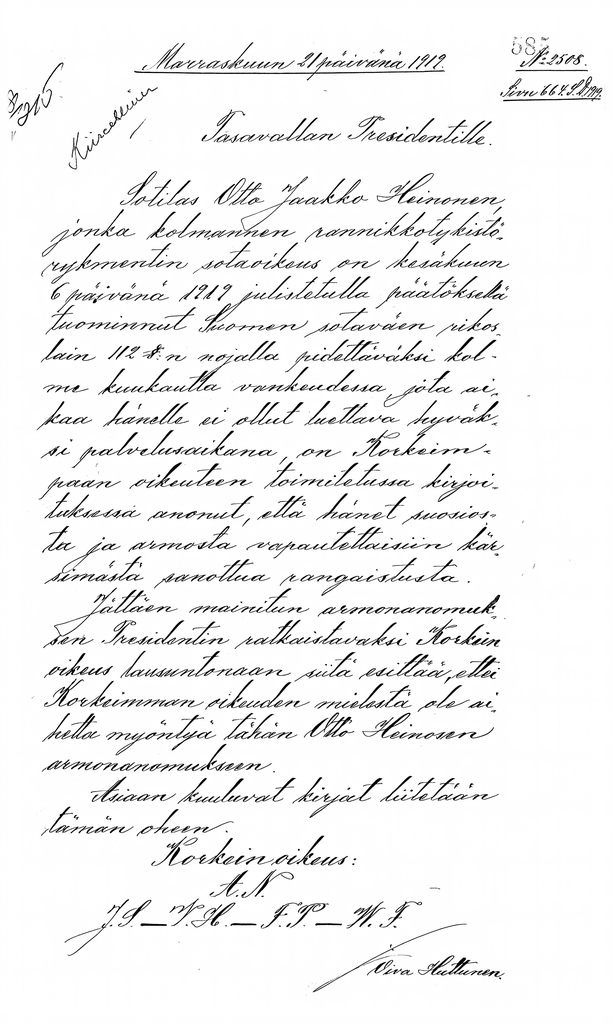 585
Marraskuun 21 päivänä 1919.
No 2508.
Sivu 664. S.D. 1919.
Kiireellinen
Tasavallan Presidentille.
Sotilas Otto Jaakko Heinonen,
jonka kolmannen rannikkotykistö-
rykmentin sotaoikeus on kesäkuun
6 päivänä 1919 julistetulla päätöksellä
tuominnut Suomen sotaväen rikos-
lain 112 §:n nojalla pidettäväksi kol-
me kuukautta vankeudessa, jota ai-
kaa hänelle ei ollut luettava hyväk-
si palvelusaikana, on Korkeim-
paan oikeuteen toimitetussa kirjoi-
tuksessa anonut, että hänet suosios-
ta ja armosta vapautettaisiin kär-
simästä sanottua rangaistusta.
Jättäen mainitun armonanomuk-
sen Presidentin ratkaistavaksi Korkein
oikeus lausuntonaan siitä esittää, ettei
Korkeimman oikeuden mielestä ole ai-
hetta myöntyä tähän Otto Heinosen
armonanomukseen.
Asiaan kuuluvat kirjat liitetään
tämän oheen.
Korkein oikeus:
A. N.
J. S. — V. H. — F. P. — W. F.
Oiva Huttunen.